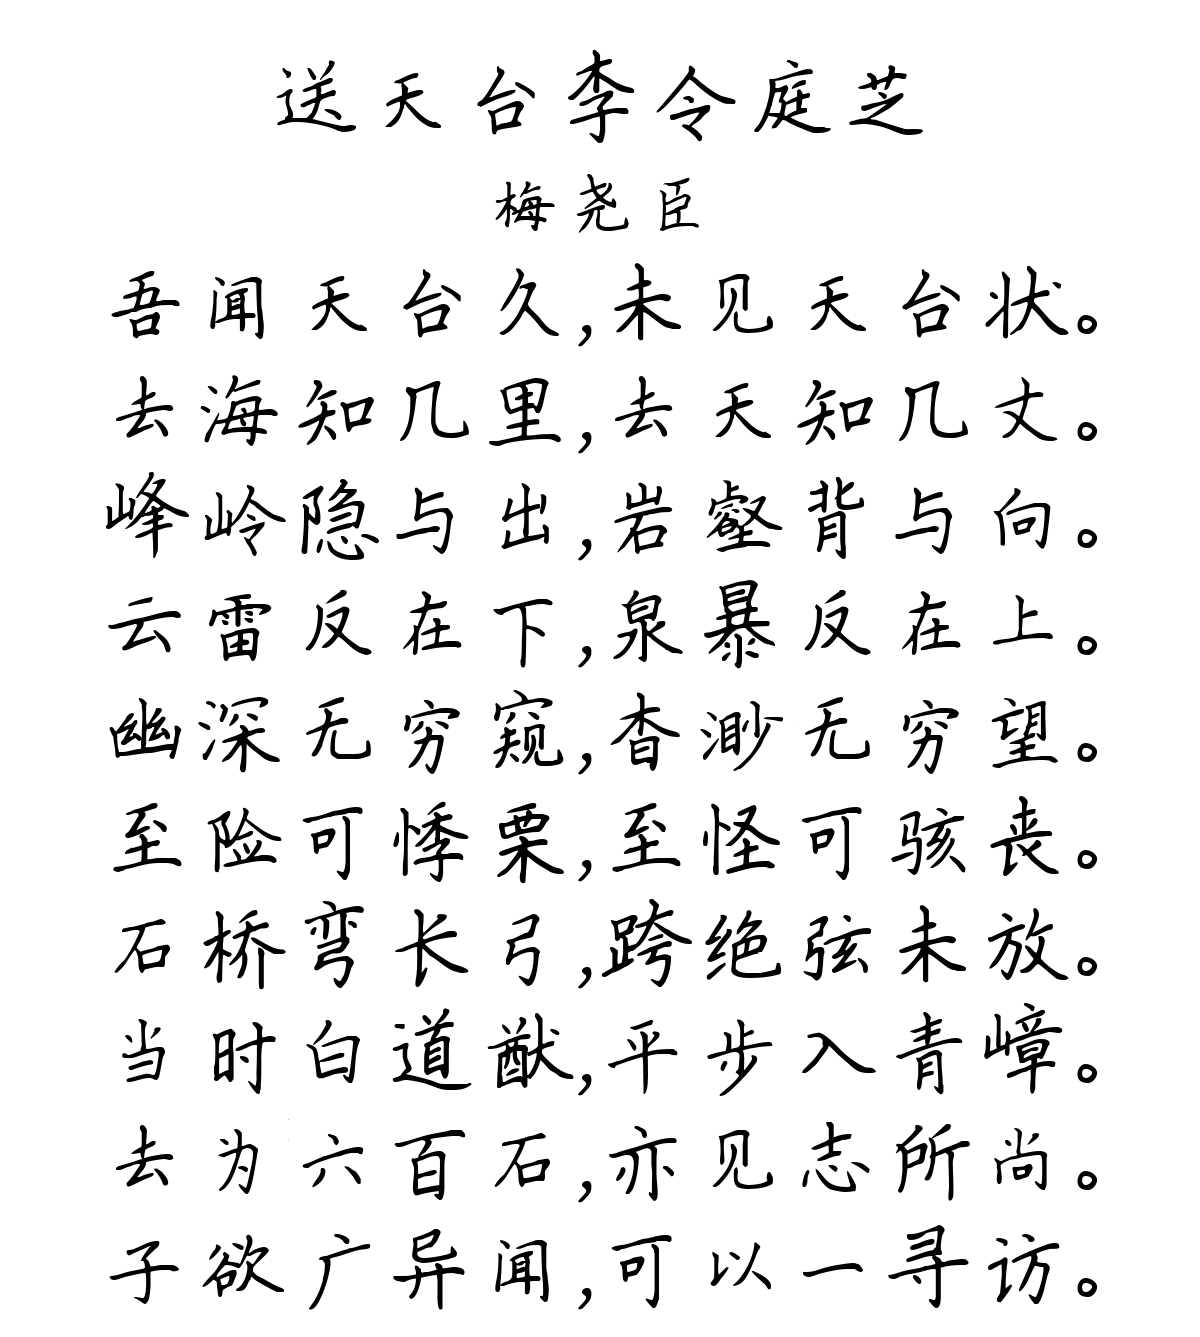 送天台李令庭芝
梅尧臣
吾闻天台久,未见天台状。
去海知几里,去天知几丈。
峰岭隐与出,岩壑背与向。
云雷反在下,泉暴反在上。
幽深无穷窥,杳渺无穷望。
至险可悸栗,至怪可骇丧。
石桥弯长弓,跨绝弦未放。
当时白道猷,平步入青嶂。
去为六百石,亦见志所尚。
子欲广异闻,可以一寻访。